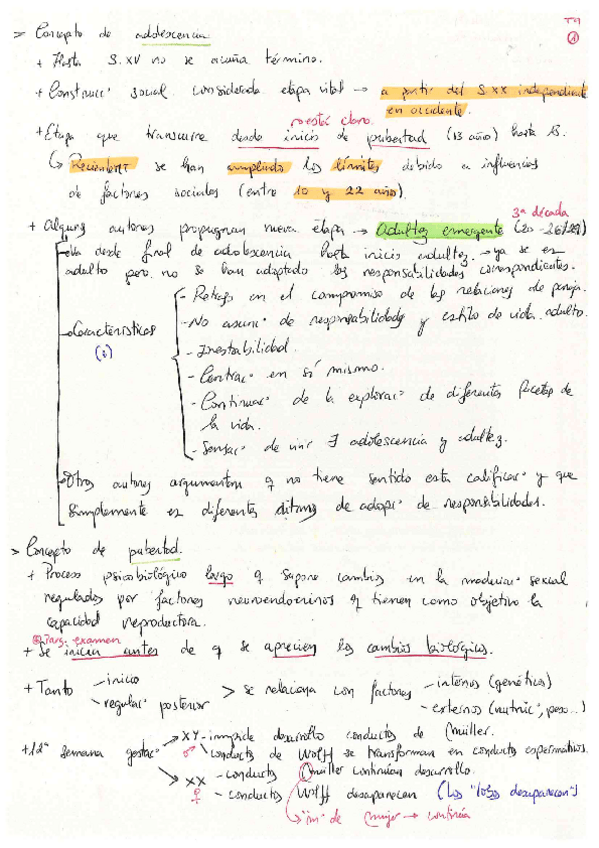 T4
①
> Concepto de adolescencia
+ Hasta S.XV no se acuña término.
+ Construcc° social considerada etapa vital → a partir del S XX independiente
en occidente.
no está claro.
+ Etapa que transcurre desde inicio de pubertad (13 años) hasta 18.
↳ Recientem. se han ampliado los límites debido a influencias
de factores sociales (entre 10 y 22 años)
3ª década
+ Algunos autores propugnan nueva etapa → Adultez emergente (20-26/29)
- Va desde final de adolescencia hasta inicio adultez. → ya se es
adulto pero no se han adoptado las responsabilidades correspondientes.
- Características
(i)
- Retraso en el compromiso de las relaciones de pareja.
- No asunc° de responsabilidades y estilo de vida adulto.
- Inestabilidad.
- Centrac° en sí mismo.
- Continuac° de la explorac° de diferentes facetas de
la vida.
- Sensac° de vivir adolescencia y adultez.
- Otros autores argumentan q no tiene sentido esta calificac° y que
simplemente es diferentes ritmos de adopc° de responsabilidades.
> Concepto de pubertad.
+ Proceso psicobiológico largo q supone cambios en la madurac° sexual
regulados por factores neuroendocrinos q tienen como objetivo la
capacidad reproductora.
examen
+ Se inician antes de q se aprecien los cambios biológicos.
+ Tanto - inicio
- regulac° posterior > se relaciona con factores - internos (genéticos)
- externos (nutric°, peso...)
+ 12ª semana gestac° → XY - impide desarrollo conductos de Müller.
♂ conductos de Wolff se transforman en conductos espermáticos.
→ XX - conductos Müller continúan desarrollo.
♀ - conductos Wolff desaparecen (Los "lobos desaparecen")
→ "m" de mujer → continúa